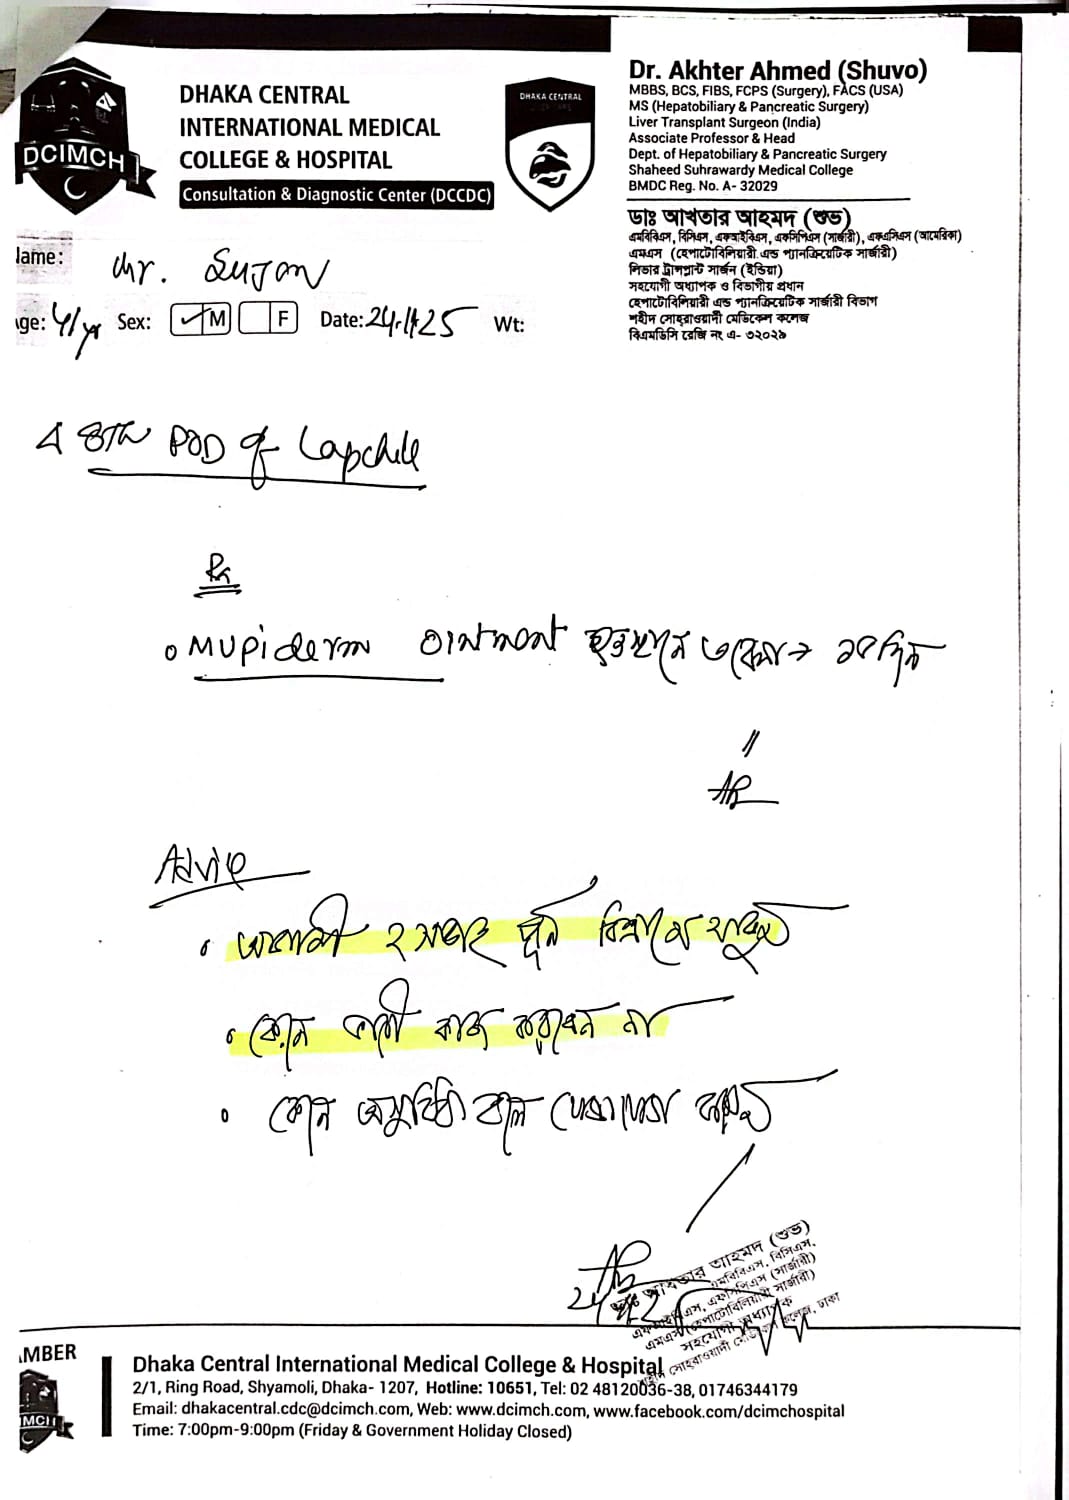 DCIMCH
DHAKA CENTRAL
INTERNATIONAL MEDICAL
COLLEGE & HOSPITAL
Consultation & Diagnostic Center (DCCDC)
DHAKA CENTRAL
Dr. Akhter Ahmed (Shuvo)
MBBS, BCS, FIBS, FCPS (Surgery), FACS (USA)
MS (Hepatobiliary & Pancreatic Surgery)
Liver Transplant Surgeon (India)
Associate Professor & Head
Dept. of Hepatobiliary & Pancreatic Surgery
Shaheed Suhrawardy Medical College
BMDC Reg. No. A- 32029
ডাঃ আখতার আহমদ (শুভ)
এমবিবিএস, বিসিএস, এফআইবিএস, এফসিপিএস (সার্জারী), এফএসিএস (আমেরিকা)
এমএস (হেপাটোবিলিয়ারী এন্ড প্যানক্রিয়েটিক সার্জারী)
লিভার ট্রান্সপ্লান্ট সার্জন (ইন্ডিয়া)
সহযোগী অধ্যাপক ও বিভাগীয় প্রধান
হেপাটোবিলিয়ারী এন্ড প্যানক্রিয়েটিক সার্জারী বিভাগ
শহীদ সোহরাওয়ার্দী মেডিকেল কলেজ
বিএমডিসি রেজি নং এ- ৩২০২৯
lame: Mr. Sujan
ge: Sex: M F Date: Wt:
8th POD of Lapchole
Rx
Mupiderm ointment ৩ বেলা → ১৫ দিন
Advice
আগামী ২ সপ্তাহ পূর্ন বিশ্রামে থাকুন
কোন ভারী কাজ করবেন না
কোন অসুবিধা হলে যোগাযোগ করুন
ডাঃ আখতার আহমদ (শুভ)
এমবিবিএস, বিসিএস,
এফআইবিএস, এফসিপিএস (সার্জারী)
এমএস (হেপাটোবিলিয়ারী সার্জারী)
সহযোগী অধ্যাপক
শহীদ সোহরাওয়ার্দী মেডিকেল কলেজ, ঢাকা
AMBER
MCH
Dhaka Central International Medical College & Hospital
2/1, Ring Road, Shyamoli, Dhaka- 1207, Hotline: 10651, Tel: 02 48120036-38, 01746344179
Email: dhakacentral.cdc@dcimch.com, Web: www.dcimch.com, www.facebook.com/dcimchospital
Time: 7:00pm-9:00pm (Friday & Government Holiday Closed)